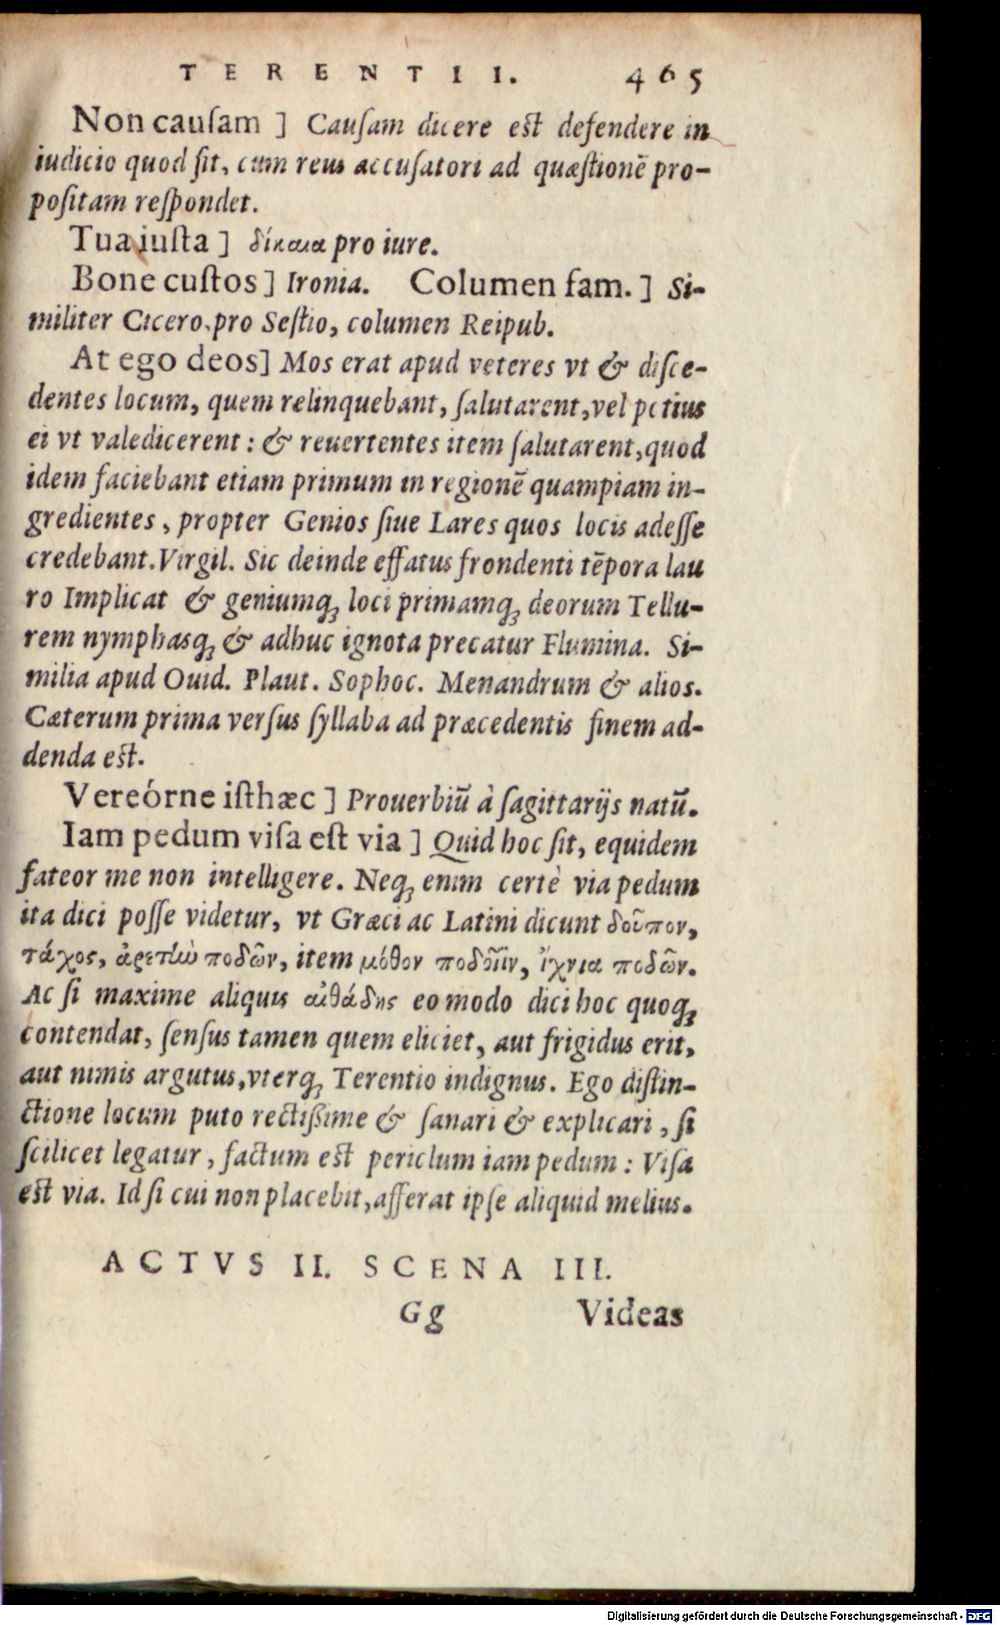 TERENTII. 465
Non causam ] Causam dicere est defendere in
iudicio quod sit, cum reus accusatori ad quæstionē pro-
positam respondet.
Tua iusta ] δίκαια pro iure.
Bone custos ] Ironia. Columen fam. ] Si-
militer Cicero.pro Sestio, columen Reipub.
At ego deos] Mos erat apud veteres vt & disce-
dentes locum, quem relinquebant, salutarent, vel potius
ei vt valedicerent : & reuertentes item salutarent, quod
idem faciebant etiam primum in regionē quampiam in-
gredientes, propter Genios siue Lares quos locis adesse
credebant. Virgil. Sic deinde effatus frondenti tēpora lau
ro Implicat & geniumq; loci primamq; deorum Tellu-
rem nymphasq; & adhuc ignota precatur Flumina. Si-
milia apud Ouid. Plaut. Sophoc. Menandrum & alios.
Cæterum prima versus syllaba ad præcedentis finem ad-
denda est.
Vereórne isthæc ] Prouerbiū à sagittarijs natū.
Iam pedum visa est via ] Quid hoc sit, equidem
fateor me non intelligere. Neq; enim certè via pedum
ita dici posse videtur, vt Græci ac Latini dicunt δοῦπον,
τάχος, ἀρετὴν ποδῶν, item μόθον ποδοῖϊν, ἴχνια ποδῶν.
Ac si maxime aliquis αὐθάδης eo modo dici hoc quoq;
contendat, sensus tamen quem eliciet, aut frigidus erit,
aut nimis argutus, vterq; Terentio indignus. Ego distin-
ctione locum puto rectissime & sanari & explicari, si
scilicet legatur, factum est periclum iam pedum : Visa
est via. Id si cui non placebit, afferat ipse aliquid melius.
ACTVS II. SCENA III.
Gg Videas
Digitalisierung gefördert durch die Deutsche Forschungsgemeinschaft - DFG